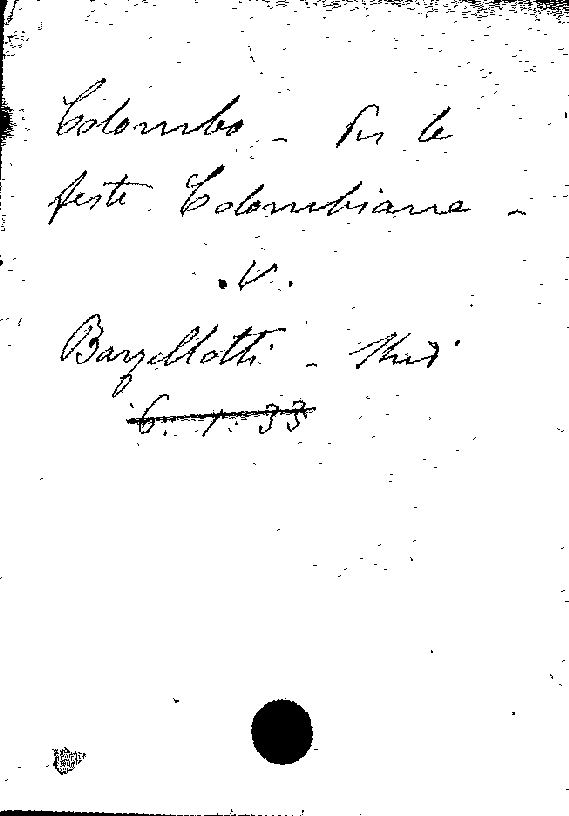 Colombo - Per le
feste Colombiane -
. V .
Barzellotti - Studi
6. 1. 33